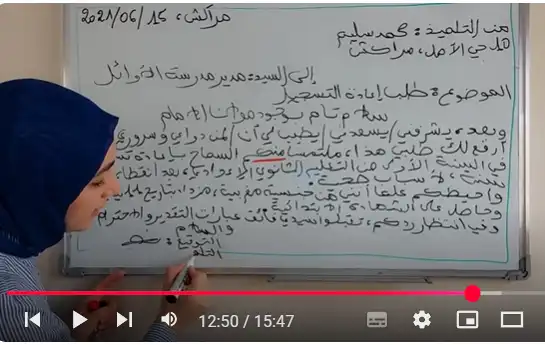 مراكش، 2021/06/15
من التلميذ: محمد سليم
10 حي الأمل، مراكش
إلى السيد: مدير مدرسة الأوائل
الموضوع: طلب إعادة التسجيل
سلام تام بوجود مولانا الإمام
وبعد، يشرفني / يسعدني / يطيب لي أن / لمن دواعي وسروري /
أرفع لك طلبي هذا، ملتمسا منكم السماح بإعادة
في السنة الأولى من التعليم الثانوي الإعدادي، بعد انقطا
سنة، لأسباب صحية.
وأحيطكم علما أنني من جنسية مغربية، مزداد بتاريخ
وحاصل على الشهادة الابتدائية
وفي انتظار ردكم، تقبلوا سيدي فائق عبارات التقدير والاحترام
والسلام
التوقيع:
التلم
12:50 / 15:47